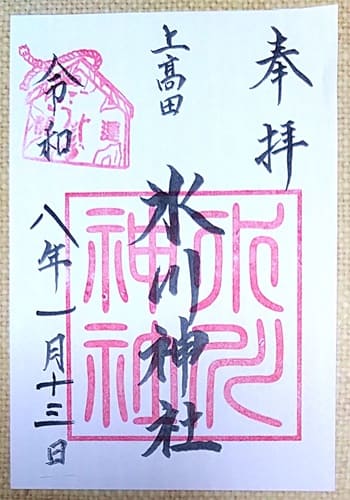 奉拝
上高田
氷川神社
氷川神社
令和八年一月十三日